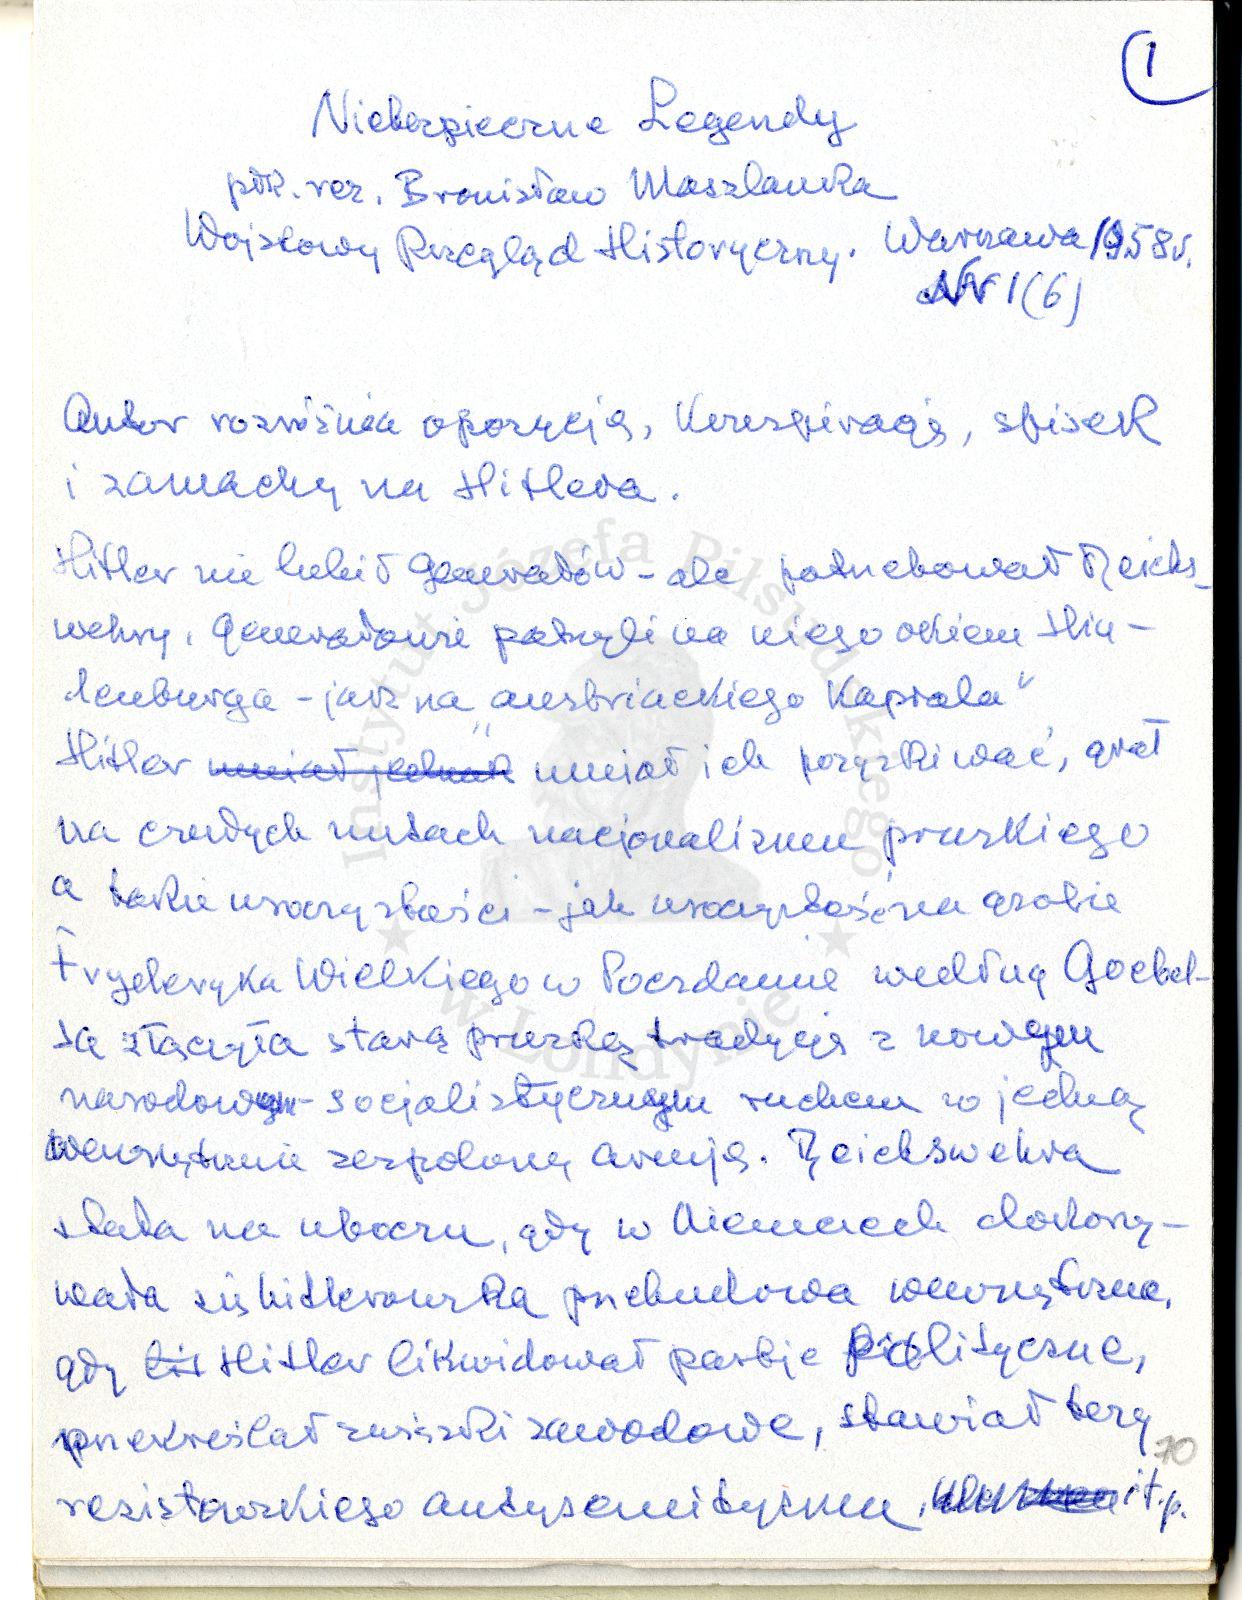 1
Niebezpieczne Legendy
płk. rez. Bronisław Maszlanka
Wojskowy Przegląd Historyczny. Warszawa 1958 r.
Nr 1(6)
Autor rozróżnia opozycję, Konspirację, spisek
i zamachy na Hitlera.
Hitler nie lubił generałów – ale potrzebował Reichs-
wehry. Generałowie patrzyli na niego okiem Hin-
denburga – jak na „austriackiego Kaprala"
Hitler umiał jednak umiał ich pozyskiwać, grał
na czułych nutach nacjonalizmu pruskiego
a takie uroczystości – jak uroczystość na grobie
Fryderyka Wielkiego w Poczdamie według Goebel-
sa złączyła starą pruską tradycję z nowym
narodowym-socjalistycznym ruchem w jedną
wewnętrznie zespoloną armję. Reichswehra
stała na uboczu, gdy w Niemczech dokony-
wała się hitlerowska przebudowa wewnętrzna,
gdy Hitler likwidował partje polityczne,
przekreślał związki zawodowe, stawiał tezy
rasistowskiego antysemityzmu, it.p.
70
Instytut Józefa Piłsudskiego
w Londynie